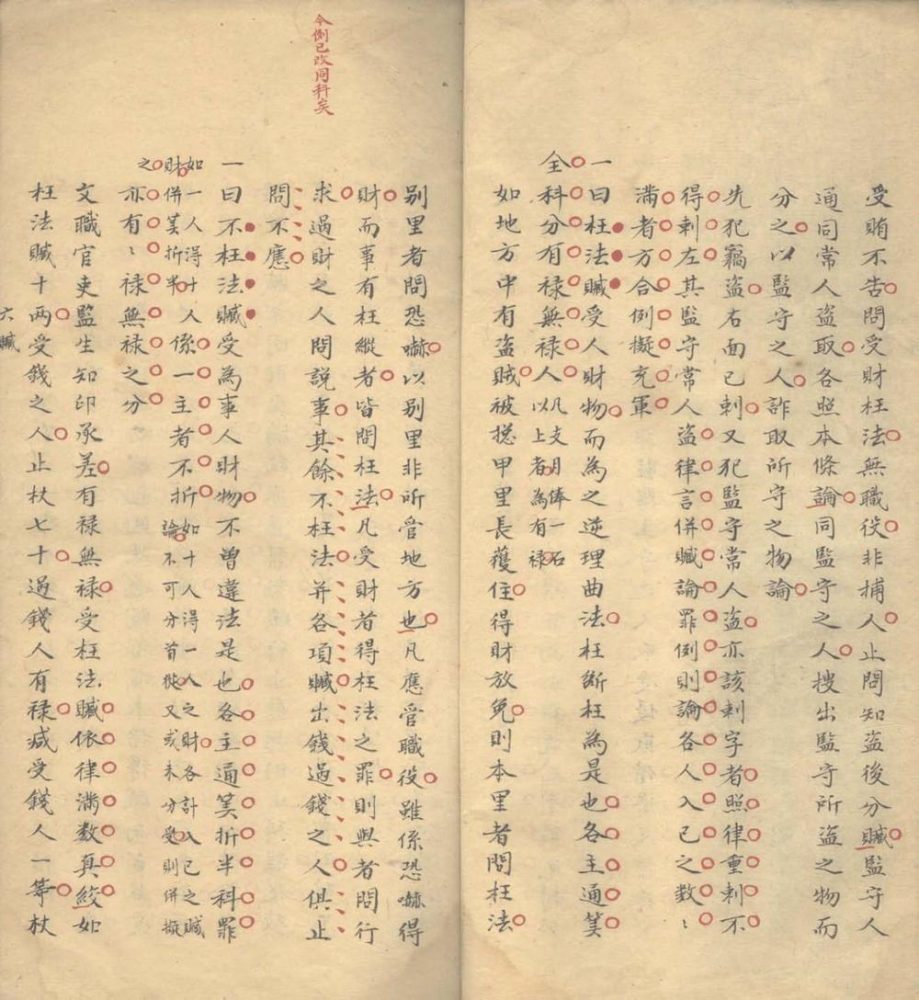 受賄不告問受財枉法無職役非捕人止問知盜後分贓監守人
通同常人盜取各照本條論同監守之人搜出監守所盜之物而
分之以監守之人詐取所守之物論
先犯竊盜右面已刺又犯監守常人盜亦該刺字者照律重刺不
得刺左其監守常人盜律言併贓論罪例則論各人入己之數〻
滿者方合例擬充軍
一曰枉法贓受人財物而為之逆理曲法枉斷枉為是也各主通筭
全科分有祿無祿人凡支月俸一石以上者為有祿
如地方中有盜賊被捴甲里長獲住得財放免則本里者問枉法
別里者問恐嚇以別里非所管地方也凡應管職役雖係恐嚇得
財而事有枉縱者皆問枉法凡受財者得枉法之罪則與者問行
求過財之人問說事其餘不枉法并各項贓出錢過錢之人俱止
問不應
今例已改同科矣
一曰不枉法贓受為事人財物不曾違法是也各主通筭折半科罪
如一人得十人財併筭折半係一主者不折如十人得一人之財各計入己之贓論不可分首從又或未分受則併擬
之亦有〻祿無祿之分
文職官吏監生知印承差有祿無祿受枉法贓依律滿数真絞如
枉法贓十兩受錢之人止杖七十過錢人有祿减受錢人一等杖
六贓